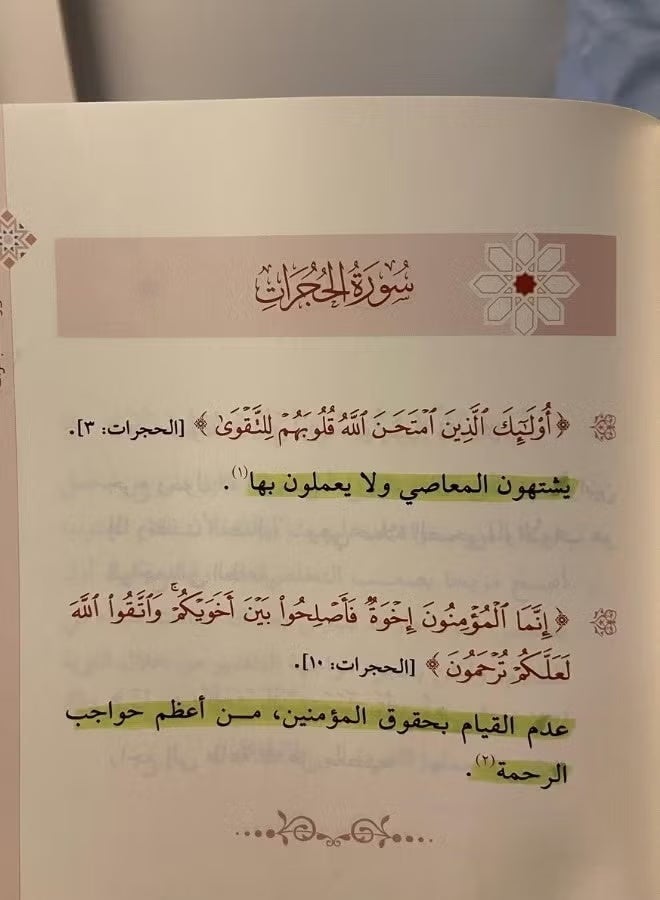 سُورَةُ الحُجُرَاتِ
﴿أُوْلَٰٓئِكَ ٱلَّذِينَ ٱمۡتَحَنَ ٱللَّهُ قُلُوبَهُمۡ لِلتَّقۡوَىٰ﴾ [الحجرات: ٣].
يشتهون المعاصي ولا يعملون بها(١).
﴿إِنَّمَا ٱلۡمُؤۡمِنُونَ إِخۡوَةٞ فَأَصۡلِحُواْ بَيۡنَ أَخَوَيۡكُمۡۚ وَٱتَّقُواْ ٱللَّهَ
لَعَلَّكُمۡ تُرۡحَمُونَ﴾ [الحجرات: ١٠].
عدم القيام بحقوق المؤمنين، مـن أعظم حواجب
الرحمة(٢).